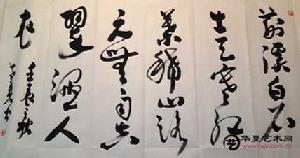 荆溪白石
出天寒红
叶稀山路
元無雨空
翠湿人
衣
华夏艺术网